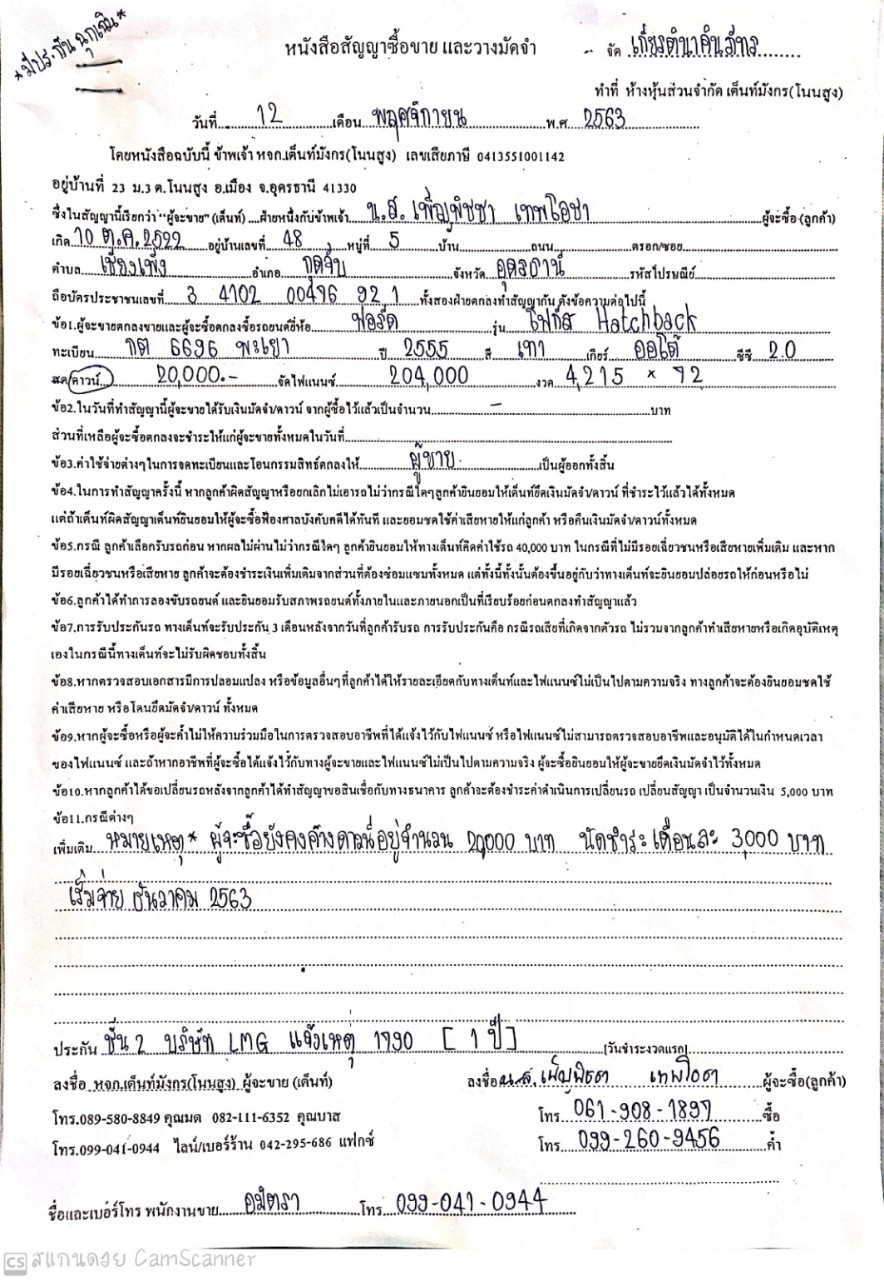 *มีประกันฉุกเฉิน*
หนังสือสัญญาซื้อขาย และวางมัดจำ
- จัด เกียรตินาคินภัทร
ทำที่ ห้างหุ้นส่วนจำกัด เต็นท์มังกร(โนนสูง)
วันที่ 12 เดือน พฤศจิกายน พ.ศ 2563
โดยหนังสือฉบับนี้ ข้าพเจ้า หจก.เต็นท์มังกร(โนนสูง) เลขเสียภาษี 0413551001142
อยู่บ้านที่ 23 ม.3 ต.โนนสูง อ.เมือง จ.อุดรธานี 41330
ซึ่งในสัญญานี้เรียกว่า "ผู้จะขาย" (เต็นท์) ....ฝ่ายหนึ่งกับข้าพเจ้า น.ส. เพ็ญพิชชา เทพโอชา ผู้จะซื้อ (ลูกค้า)
เกิด 10 ต.ค. 2522 อยู่บ้านเลขที่ 48 หมู่ที่ 5 บ้าน ถนน ตรอก/ซอย
ตำบล เชียงเพ็ง อำเภอ กุดจับ จังหวัด อุดรธานี รหัสไปรษณีย์
ถือบัตรประชาชนเลขที่ 3 4102 00496 92 1 ทั้งสองฝ่ายตกลงทำสัญญากัน ดังข้อความต่อไปนี้
ข้อ1.ผู้จะขายตกลงขายและผู้จะซื้อตกลงซื้อรถยนต์ยี่ห้อ ฟอร์ด รุ่น โฟกัส Hatchback
ทะเบียน กต 6696 พะเยา ปี 2555 สี เทา เกียร์ ออโต้ ซีซี 2.0
สด/ดาวน์ 20,000.- จัดไฟแนนซ์ 204,000 งวด 4,215 × 72
ข้อ2.ในวันที่ทำสัญญานี้ผู้จะขายได้รับเงินมัดจำ/ดาวน์ จากผู้ซื้อไว้แล้วเป็นจำนวน - บาท
ส่วนที่เหลือผู้จะซื้อตกลงจะชำระให้แก่ผู้จะขายทั้งหมดในวันที่
ข้อ3.ค่าใช้จ่ายต่างๆในการจดทะเบียนและโอนกรรมสิทธิ์ตกลงให้ ผู้ขาย เป็นผู้ออกทั้งสิ้น
ข้อ4.ในการทำสัญญาครั้งนี้ หากลูกค้าผิดสัญญาหรือยกเลิกไม่เอารถไม่ว่ากรณีใดๆลูกค้ายินยอมให้เต็นท์ยึดเงินมัดจำ/ดาวน์ ที่ชำระไว้แล้วได้ทั้งหมด
แต่ถ้าเต็นท์ผิดสัญญาเต็นท์ยินยอมให้ผู้จะซื้อฟ้องศาลบังคับคดีได้ทันที และยอมชดใช้ค่าเสียหายให้แก่ลูกค้า หรือคืนเงินมัดจำ/ดาวน์ทั้งหมด
ข้อ5.กรณี ลูกค้าเลือกรับรถก่อน หากผลไม่ผ่านไม่ว่ากรณีใดๆ ลูกค้ายินยอมให้ทางเต็นท์คิดค่าใช้รถ 40,000 บาท ในกรณีที่ไม่มีรอยเฉี่ยวชนหรือเสียหายเพิ่มเติม และหาก
มีรอยเฉี่ยวชนหรือเสียหาย ลูกค้าจะต้องชำระเงินเพิ่มเติมจากส่วนที่ต้องซ่อมแซมทั้งหมด แต่ทั้งนี้ทั้งนั้นต้องขึ้นอยู่กับว่าทางเต็นท์จะยินยอมปล่อยรถให้ก่อนหรือไม่
ข้อ6.ลูกค้าได้ทำการลองขับรถยนต์ และยินยอมรับสภาพรถยนต์ทั้งภายในและภายนอกเป็นที่เรียบร้อยก่อนตกลงทำสัญญาแล้ว
ข้อ7.การรับประกันรถ ทางเต็นท์จะรับประกัน 3 เดือนหลังจากวันที่ลูกค้ารับรถ การรับประกันคือ กรณีรถเสียที่เกิดจากตัวรถ ไม่รวมจากลูกค้าทำเสียหายหรือเกิดอุบัติเหตุ
เองในกรณีนี้ทางเต็นท์จะไม่รับผิดชอบทั้งสิ้น
ข้อ8.หากตรวจสอบเอกสารมีการปลอมแปลง หรือข้อมูลอื่นๆที่ลูกค้าได้ให้รายละเอียดกับทางเต็นท์และไฟแนนซ์ไม่เป็นไปตามความจริง ทางลูกค้าจะต้องยินยอมชดใช้
ค่าเสียหาย หรือโดนยึดมัดจำ/ดาวน์ ทั้งหมด
ข้อ9.หากผู้จะซื้อหรือผู้จะค้ำไม่ให้ความร่วมมือในการตรวจสอบอาชีพที่ได้แจ้งไว้กับไฟแนนซ์ หรือไฟแนนซ์ไม่สามารถตรวจสอบอาชีพและอนุมัติได้ในกำหนดเวลา
ของไฟแนนซ์ และถ้าหากอาชีพที่ผู้จะซื้อได้แจ้งไว้กับทางผู้จะขายและไฟแนนซ์ไม่เป็นไปตามความจริง ผู้จะซื้อยินยอมให้ผู้จะขายยึดเงินมัดจำไว้ทั้งหมด
ข้อ10.หากลูกค้าได้ขอเปลี่ยนรถหลังจากลูกค้าได้ทำสัญญาขอสินเชื่อกับทางธนาคาร ลูกค้าจะต้องชำระค่าดำเนินการเปลี่ยนรถ เปลี่ยนสัญญา เป็นจำนวนเงิน 5,000 บาท
ข้อ11.กรณีต่างๆ
เพิ่มเติม หมายเหตุ* ผู้จะซื้อยังคงค้างดาวน์อยู่จำนวน 20,000 บาท นัดชำระเดือนละ 3,000 บาท
เริ่มจ่าย ธันวาคม 2563
ประกัน ชั้น 2 บริษัท LMG แจ้งเหตุ 1790 [ 1 ปี ] [วันชำระงวดแรก]
ลงชื่อ หจก.เต็นท์มังกร(โนนสูง) ผู้จะขาย (เต็นท์) ลงชื่อ น.ส. เทพโอชา ผู้จะซื้อ(ลูกค้า)
โทร.089-580-8849 คุณมด 082-111-6352 คุณบาส โทร 061-908-1897 ซื้อ
โทร.099-041-0944 ไลน์/เบอร์ร้าน 042-295-686 แฟกซ์ โทร 099-260-9456 ค้ำ
ชื่อและเบอร์โทร พนักงานขาย อมิตรา โทร 099-041-0944
CS สแกนด้วย CamScanner